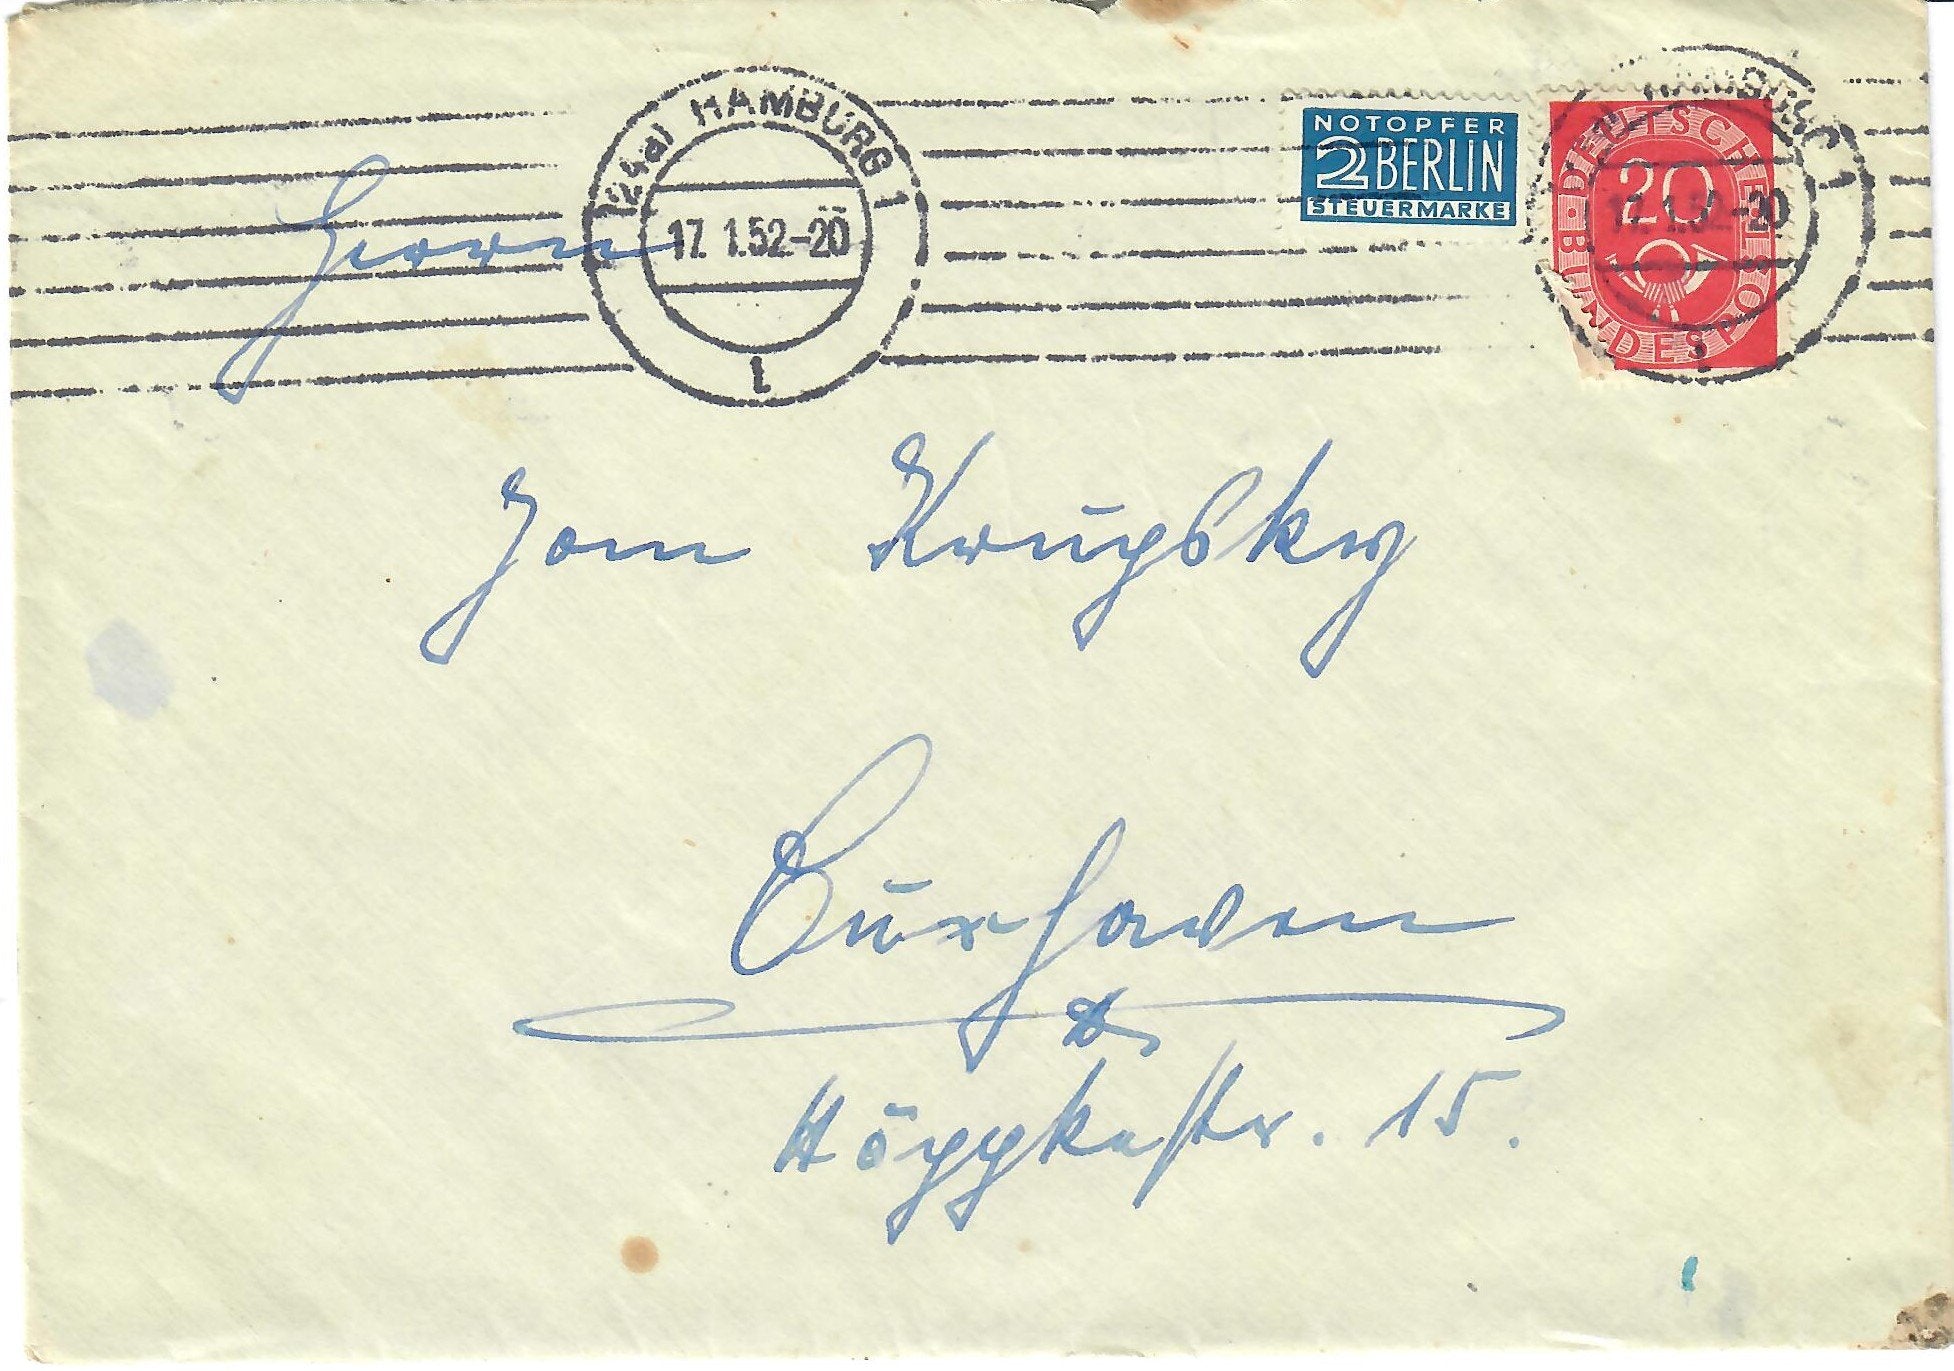 (24a) HAMBURG 1
17.1.52-20
1
NOTOPFER
2 BERLIN
STEUERMARKE
DEUTSCHE BUNDESPOST
20
HAMBURG 1
17.1.52-20
1
Herrn
Krugsky
Cuxhaven
Höppkestr. 15.